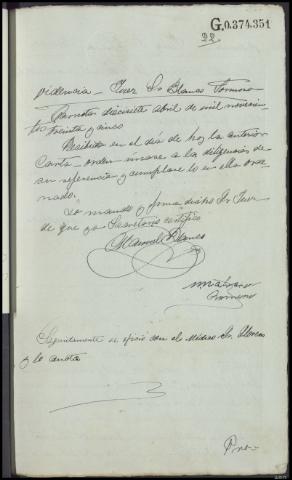 G.0.374.351
22
videncia - Juez Sr Blanco Romero
diecisiete abril de mil novecien
tos treinta y cinco
Recibida en el día de hoy la anterior
Carta-orden unase a la diligencias de
su referencia y cumplase lo en ella orde
nado.
Lo mando y firma dicho Sr Juez
de que yo Secretario certifico
Manuel Blanco
Seguidamente se oficia con el Médico Sr.
y lo anoto